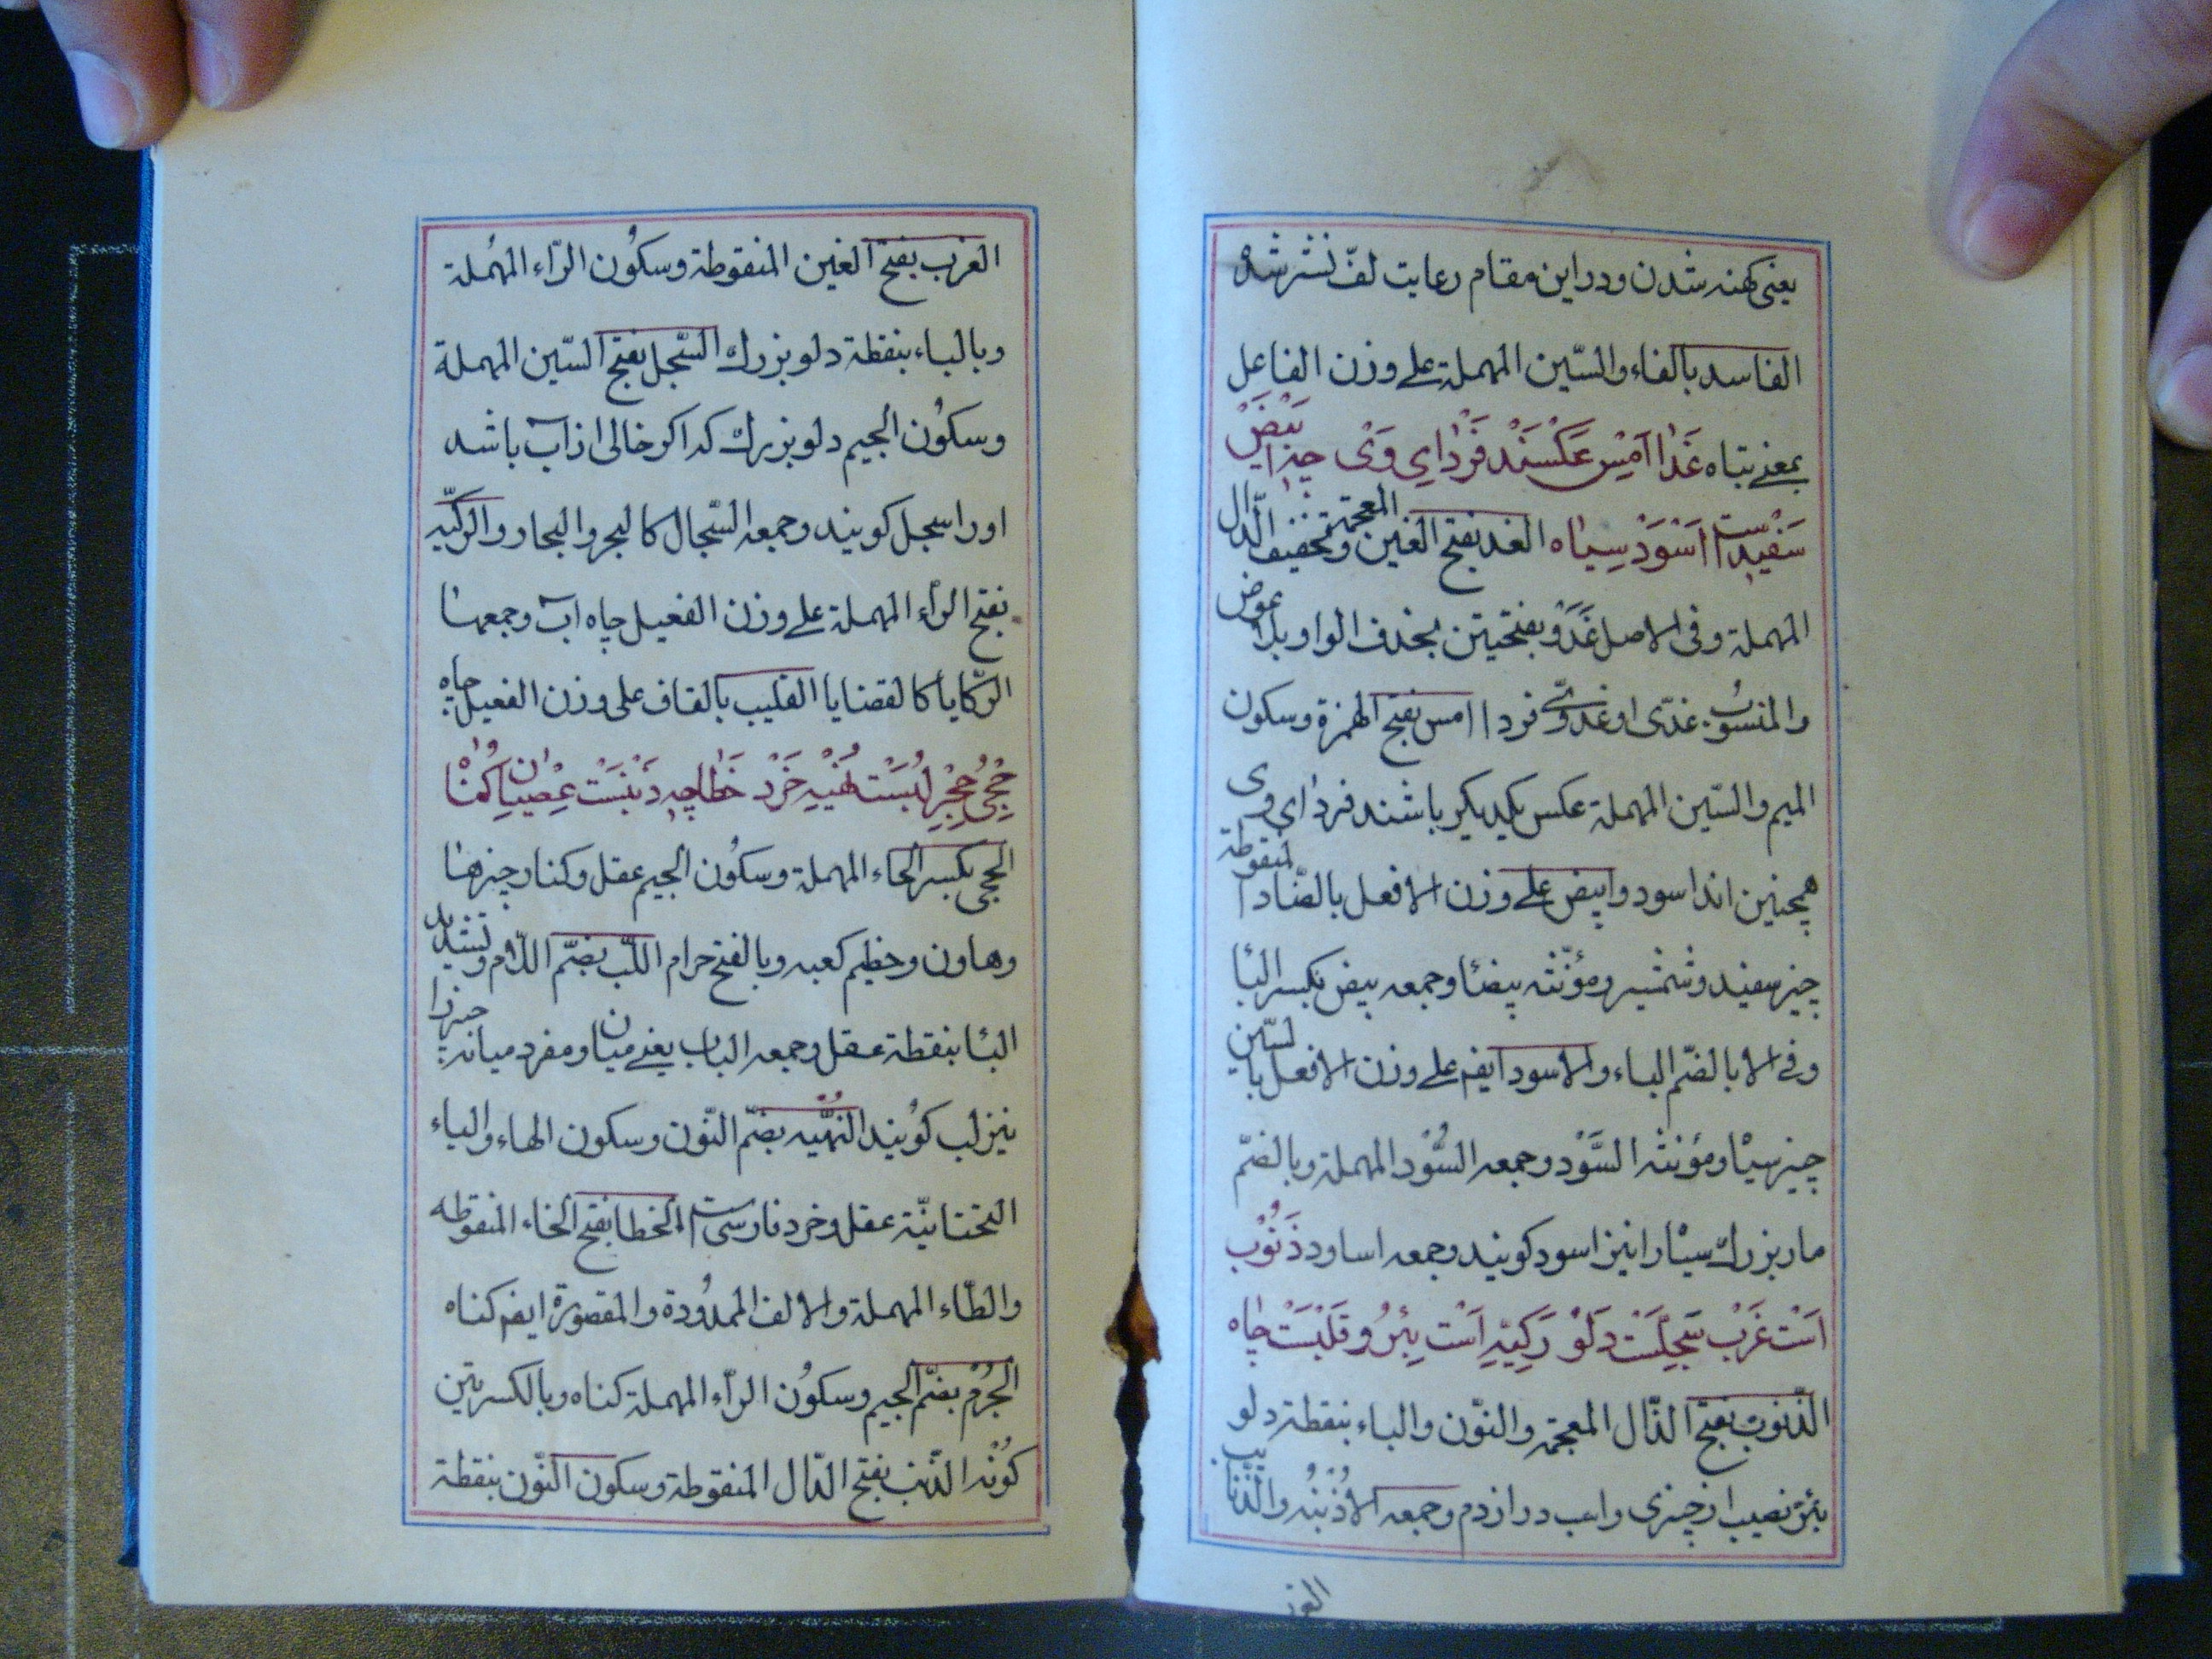 یعنی کهنه شدن و در این مقام رعایت لفّ نشر شده
الفاسد بالفاء والسّین المهملة علی وزن الفاعل
بمعنی تباه غَدا اَمْسِ عَکْسَنْد فَرْدای وَیْ چیز اَبْیَضْ
سَفیدست اَسْوَدْ سِیاه الغد بفتح الغین المعجمة وتخفیف الدّال
المهملة وفی الاصل غَدَوٌ بفتحیتن بحذف الواو بلا عوض
والمنسوب غدی او غدوّی فردا امس بفتح الهمزة وسکون
المیم والسّین المهملة عکس یکدیکر باشند فردای وی
همچنین اند اسود وابیض علی وزن الافعل بالضّاد المنقوطة
چیز سفید وشمشیر ومؤنّثه بیضاء وجمعه بیض بکسر الباء
وفی الابالضّم الباء والاسود ایضم علی وزن الافعل بالسّین
چیز سیاه ومؤنثه السَّوْد وجمعه السُّوْد المهملة وبالضّم
مار بزرك سیاه را نیز اسود کویند وجمعه اساود ذَنُوْب
اَسْت غَرْب سَجِلَسْت دَلْوْ رَکِیّه اَسْت بِئْرُ و قَلَبَسْت چاه
الذّنوب بفتح الذّال المعجمة والنّون والباء بنقطة دلو
بئر نصیب از چیزی واسب دراز دم وجمعه الاُذْنُبُه والذّنایب
الغر
الغرب بفتح الغین المنقوطة وسکون الرّاء المهملة
وبالباء بنقطة دلو بزرك السّجل بفتح السّین المهملة
وسکون الجیم دلو بزرك که اکر خالی از آب باشد
اورا سجل کویند وجمعه السّجال کالبحر والبحار والرّکیّه
بفتح الرّاء المهملة علی وزن الفعیل چاه آب وجمعها
الرّکایا کالقضایا القلیب بالقاف علی وزن الفعیل چاه
حِجیٰ حِجْرِ لُبَسْت نُهْیَه خَرَدْ خَطا چه ذَنْبَسْت عِصْیان کُناه
الحجی بکسر الحاء المهملة وسکون الجیم عقل وکنار چیزها
وهاون وحطیم کعبه وبالفتح حرام اللّب بضّم اللّام وتشدید
الباء بنقطة عقل وجمعه الباب یعنی میان ومفرد میانه چیز را
نیز لب کویند النّهیه بضّم النّون وسکون الهاء والیاء
التحتانیّة عقل وخرد فارسی است الخطا بفتح الخاء المنقوطه
والطّاء المهملة والالف الممدودة والمقصورة ایضم کناه
الجُرْم بضّم الجیم وسکون الرّاء المهملة کناه وبالکسر تین
کُونه الذّنب بفتح الذّال المنقوطة وسکون النّون بنقطة